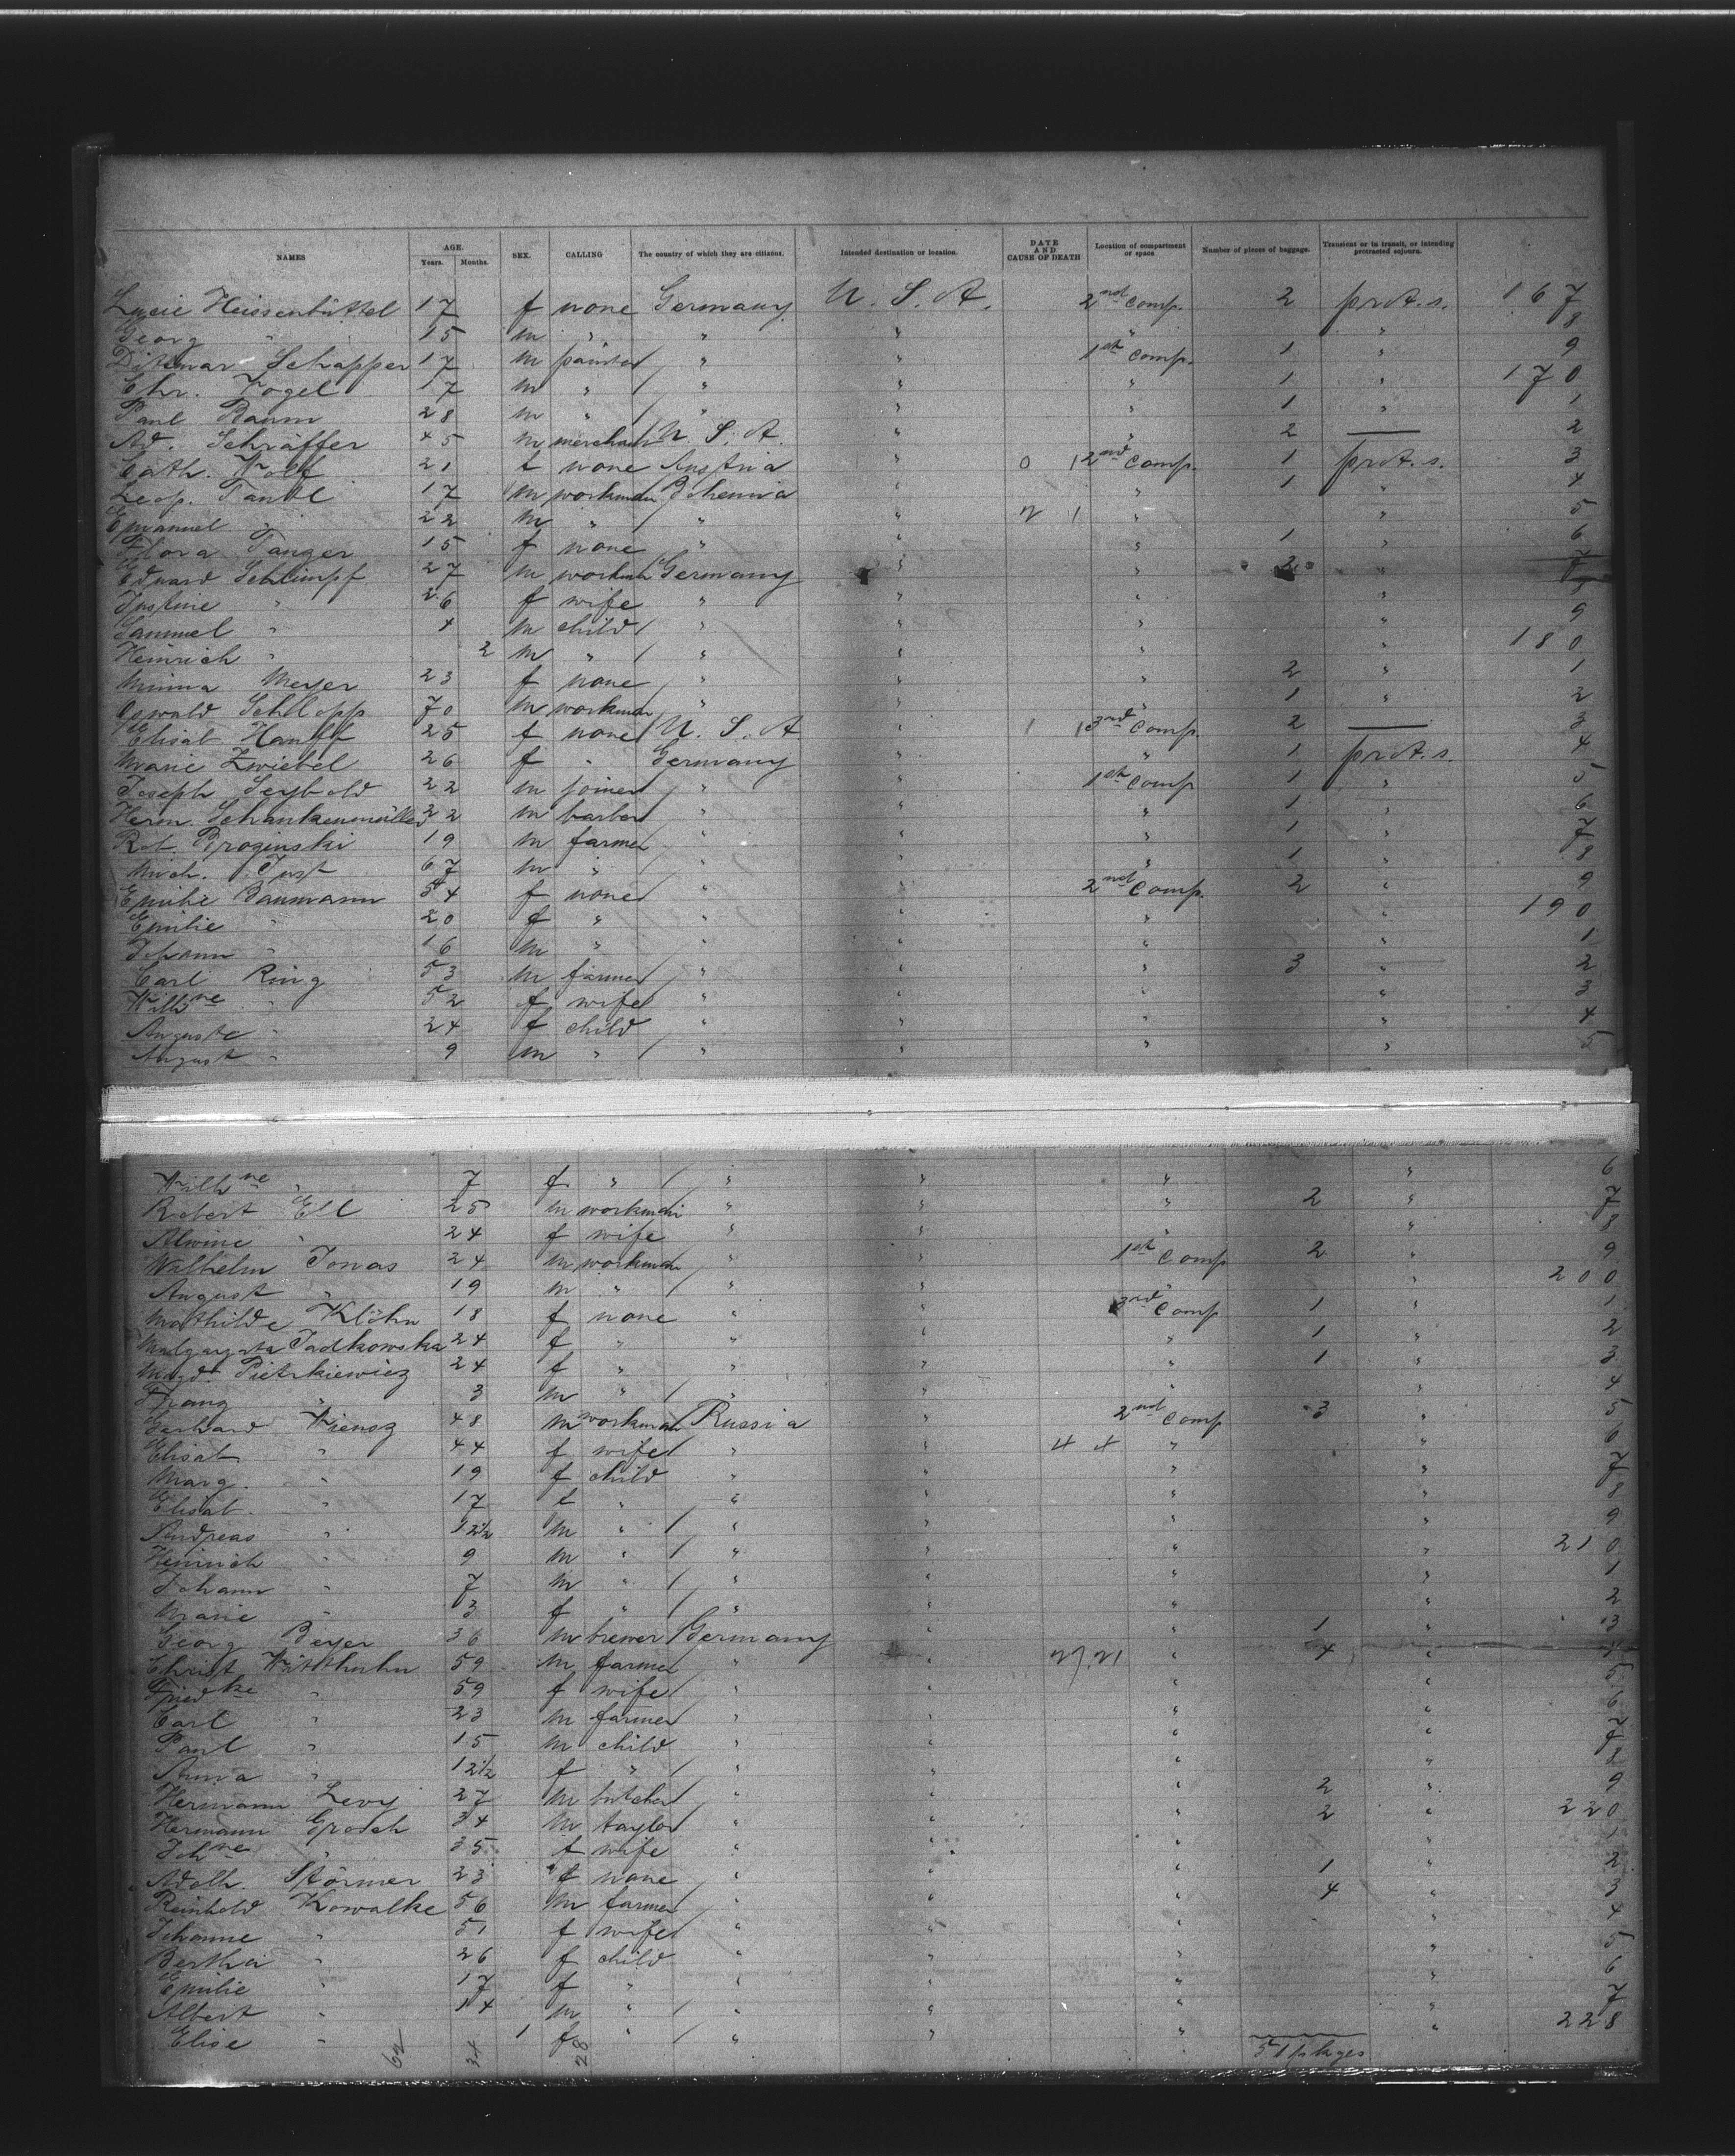 NAMES AGE. Years. Months. SEX. CALLING The country of which they are citizens. Intended destination or location. DATE AND CAUSE OF DEATH Location of compartment or space Number of pieces of baggage. Transient or in transit, or intending protracted sojourn.
Lucie Heissenbüttel 17 f none Germany U. S. A. 2nd comp. 2 prtr. s. 167
Georg " 15 m " " " " " 8
Ditmar Schapper 17 m painter / " " 1st comp. 1 " 9
Chr. Vogel 17 m " / " " " 1 " 170
Paul Baum 28 m " / " " " 1 " 1
Ad. Schräffer 45 m merchant U. S. A. " " 2 — 2
Cath. Wolf 21 f none Austria " 0 1 2nd comp. 1 prtr. s. 3
Leop. 17 m workman Bohemia " " 1 " 4
Emanuel " 22 m " / " " 2 1 " " 5
Flora Tanger 15 f none " " " 1 " 6
Eduard Schimpf 27 m workm Germany " " 2 " 7
Justine " 26 f wife " " " " 8
Sammel " 4 m child / " " " " 9
Heinrich " 2 m " / " " " " 180
Minna Meyer 23 f none " " " 2 " 1
Oswald Schlopp 70 m workman " " " 1 " 2
Elisab. Hanff 25 f none U. S. A " 1 1 3rd comp. 2 — 3
Marie Zwiebel 26 f " Germany " " 1 prtr. s. 4
Joseph Seybold 22 m joiner " " 1st comp 1 " 5
Herm. Schankenmüller 22 m barber " " " 1 " 6
Rob. Broginski 19 m farmer " " " 1 " 7
Mich. Just 67 m " / " " " 1 " 8
Emilie Baumann 54 f none " " 2nd comp. 2 " 9
Emilie " 20 f " " " " " 190
Johann " 16 m " / " " " " 1
Carl Ring 53 m farmer / " " " 3 " 2
Wilhne " 52 f wife " " " " 3
Auguste " 24 f child " " " " 4
August " 9 m " / " " " " 5
Wilhne " 7 f " / " " " " 6
Robert Ell 25 m workman " " " 2 " 7
Alwine " 24 f wife " " " " 8
Wilhelm Jonas 24 m workman " " 1st comp 2 " 9
August " 19 m " / " " " " 200
Mathilde Klöhn 18 f none " " 3rd comp 1 " 1
Malgargata Jadkowska 24 f " " " " 1 " 2
Magd. Pietrkiewicz 24 f " " " " 1 " 3
Franz " 3 m " / " " " " 4
Gerhard Wiensz 48 m workman Russia " 2nd comp 3 " 5
Elisab. " 44 f wife " " 4 4 " " 6
Marg. " 19 f child " " " " 7
Elisab. " 17 f " " " " " 8
Andreas " 12½ m " / " " " " 9
Heinrich " 9 m " / " " " " 210
Johann " 7 m " / " " " " 1
Marie " 3 f " / " " " " 2
Georg Beyer 36 m brewer / Germany " " 1 " 3
Christ. Witthuhn 59 m farmer " " 21. 21 " 4 " 4
Friedke " 59 f wife " " " " 5
Carl " 23 m farmer " " " " 6
Paul " 15 m child " " " " 7
Anna " 12½ f " / " " " " 8
Hermann Levy 27 m butcher " " " 2 " 9
Hermann Grosch 34 m taylor " " " 2 " 220
Johne " 35 f wife " " " " 1
Adelh. Störmer 23 f none " " " 1 " 2
Reinhold Kowalke 56 m farmer " " " 4 " 3
Johanne " 51 f wife " " " " 4
Bertha " 26 f child " " " " 5
Emilie " 17 f " " " " " 6
Albert " 14 m " / " " " " 7
Elise " 1 f " / " " " " 228
62 34 28 51 pkges